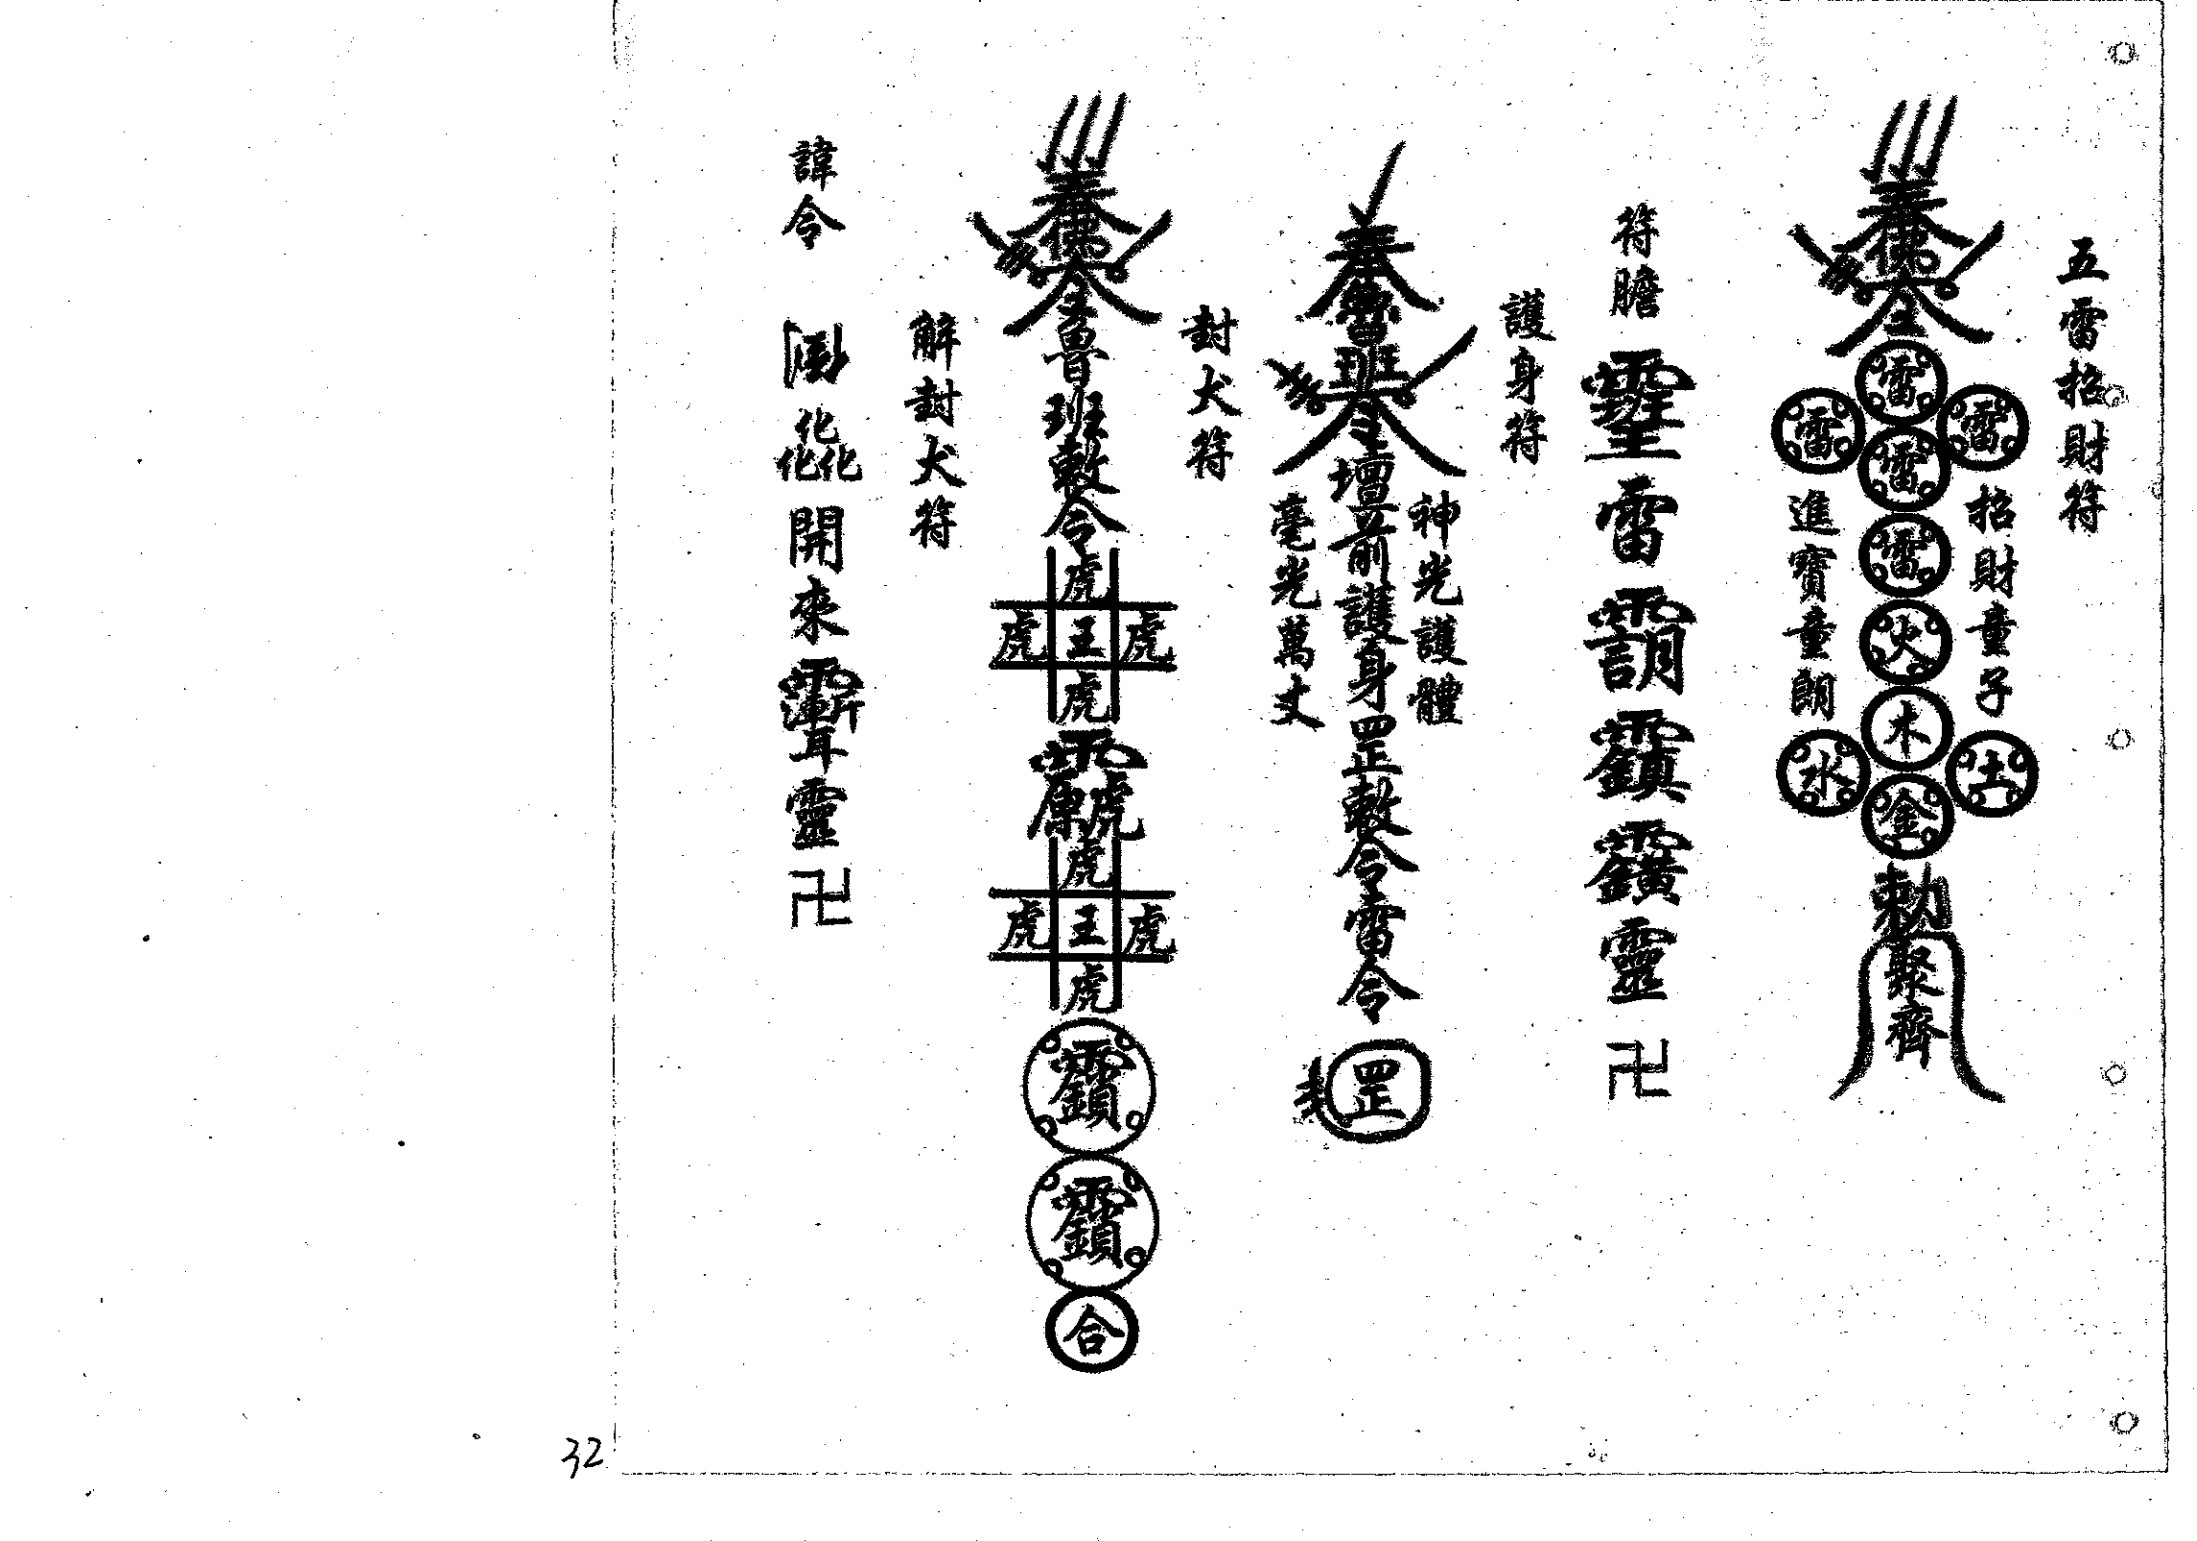 五雷招財符
奉佛令
雷
雷 雷 雷
雷
火
木
水 金 土
招財童子
進寶童朗
勅聚齊
符膽
雷
靈卍
護身符
奉魯班令壇前護身罡敕令雷令
神光護體
毫光萬丈
罡
封犬符
奉佛令魯班敕令
虎
虎王虎
虎
虎
虎王虎
虎
合
解封犬符
諱令
化化化開來
靈卍
32